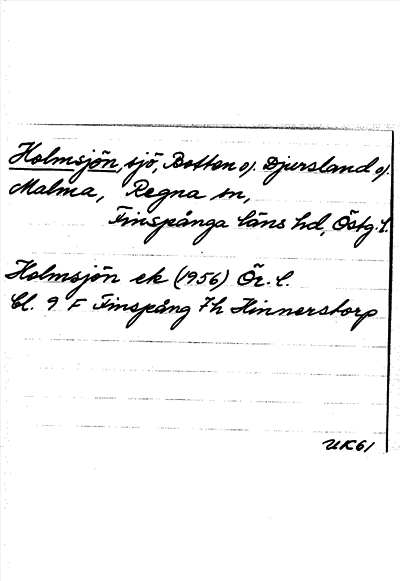 Holmsjön, sjö, Botten o. Djursland o.
Malma, Regna sn,
Finspånga läns hd, Östg. l.
Holmsjön ek (1956) Ör. l.
Bl. 9 F Finspång 7h Hinnerstorp
UK61